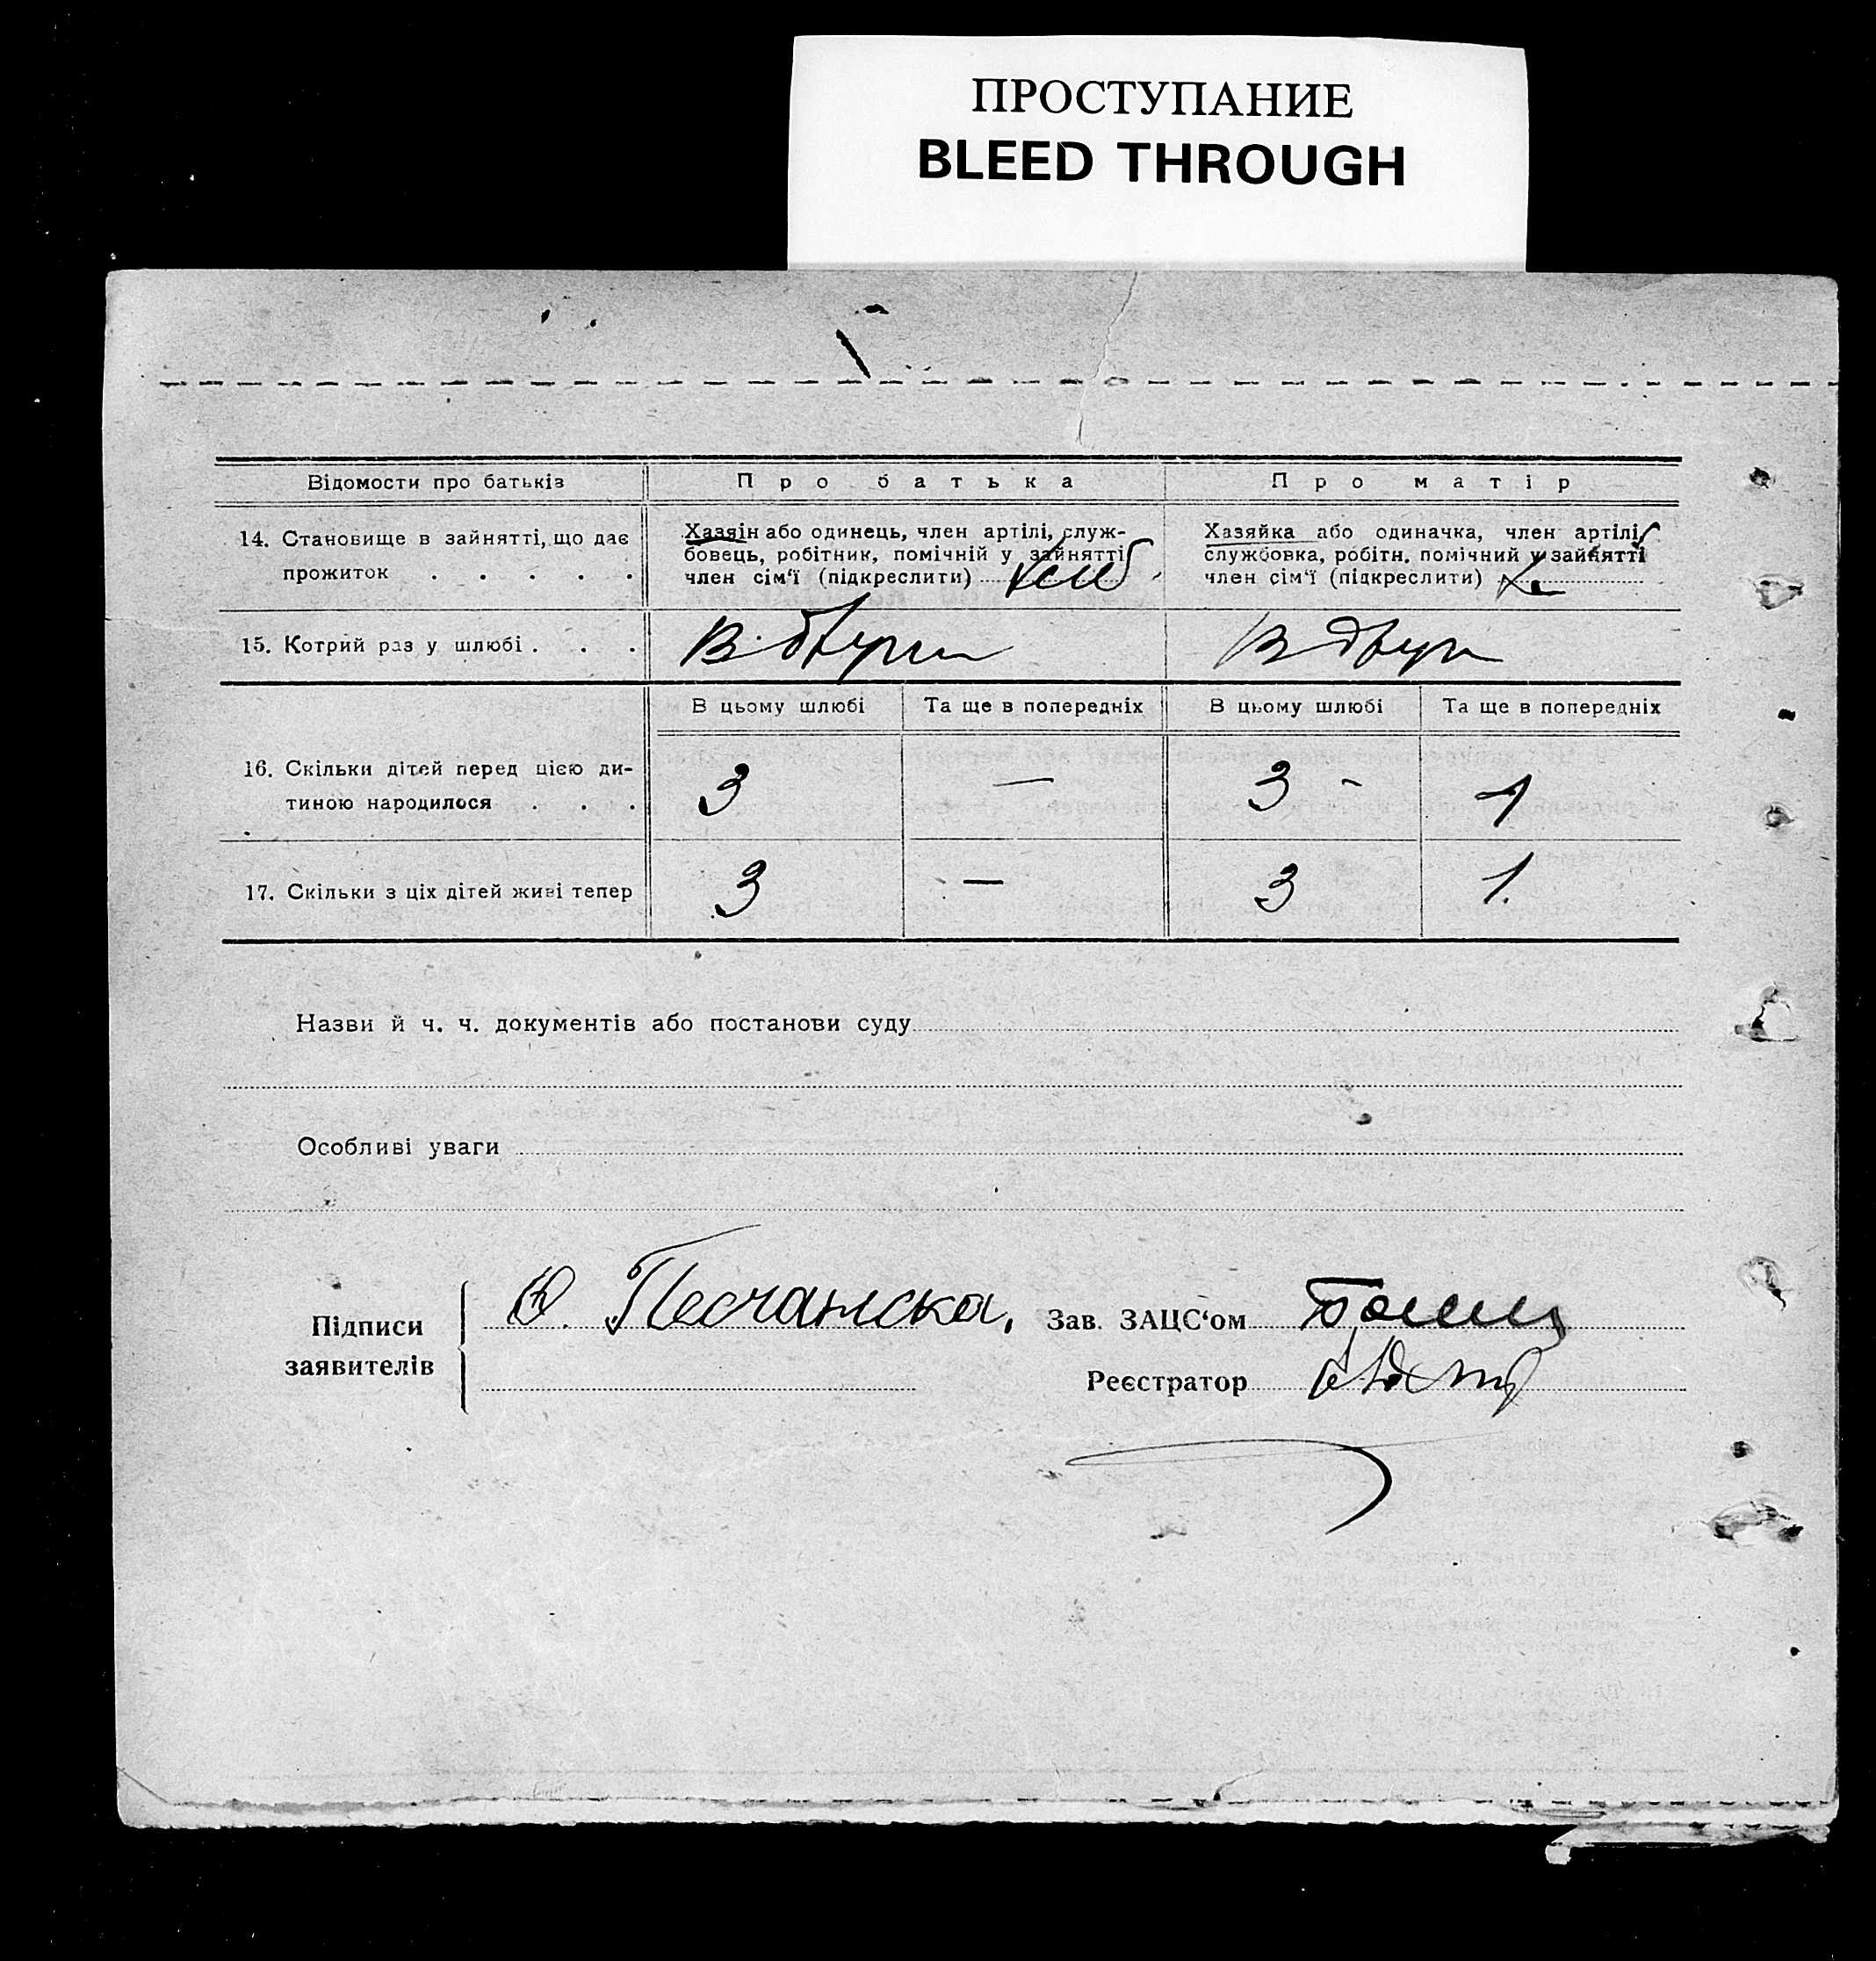 ПРОСТУПАНИЕ
BLEED THROUGH
Відомости про батьків
Про батька
Про матір
14. Становище в зайнятті, що дає
прожиток . . . . .
Хазяін або одинець, член артілі, служ-
бовець, робітник, помічній у зайнятті
член сім'ї (підкреслити)
Хазяйка або одиначка, член артілі
службовка, робітн. помічний у зайнятті
член сім'ї (підкреслити)
15. Котрий раз у шлюбі . . .
В цьому шлюбі
Та ще в попередніх
В цьому шлюбі
Та ще в попередніх
16. Скільки дітей перед цією ди-
тиною народилося . . .
3 — 3 - 1
17. Скільки з ціх дітей живі тепер
3 — 3 1.
Назви й ч. ч. документів або постанови суду
Особливі уваги
Підписи
заявителів
Песчанска,
Зав. ЗАЦС'ом
Реєстратор